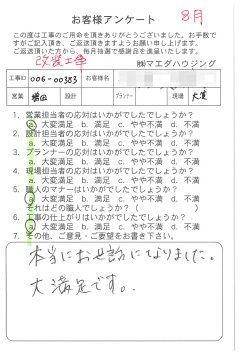 お客様アンケート
8月
この度は工事のご用命を頂きありがとうございました。お手数で
すがご記入頂き、ご返送頂きますようお願い申し上げます。
ご返送頂いた方から、毎月抽選で感謝品を進呈いたします。
改装工事
㈱マエダハウジング
工事ID 006-00383 お客様名
営業 設計 プランナー 現場
1. 営業担当者の応対はいかがでしたでしょうか?
a. 大変満足 b. 満足 c. やや不満 d. 不満
2. 設計担当者の応対はいかがでしたでしょうか?
a. 大変満足 b. 満足 c. やや不満 d. 不満
3. プランナーの応対はいかがでしたでしょうか?
a. 大変満足 b. 満足 c. やや不満 d. 不満
4. 現場担当者の応対はいかがでしたでしょうか?
a. 大変満足 b. 満足 c. やや不満 d. 不満
5. 職人のマナーはいかがでしたでしょうか?
a. 大変満足 b. 満足 c. やや不満 d. 不満
それはどの職人でしょうか?( )
6. 工事の仕上がりはいかがでしたでしょうか?
a. 大変満足 b. 満足 c. やや不満 d. 不満
7. その他、ご意見・ご要望をお書き下さい。
本当にお世話になりました。
大満足です。